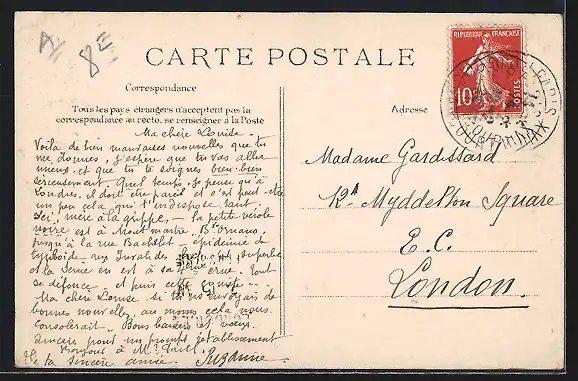 CARTE POSTALE
Correspondance
Tous les pays étrangers n'acceptent pas la
correspondance au recto. se renseigner à la Poste
Ma chère Louise.
Voilà de bien mauvaises nouvelles que tu
me donnes, j'espère que tu vas aller
mieux et que tu te soignes bien bien
sérieusement. Quel temps, je pense qu'à
Londres, il doit être pareil et c'est peut-être
un peu cela qui t'indispose tant.
Ici, mère a la grippe, — la petite vérole
noire est à Montmartre, Bd Ornano,
jusqu'à la rue Bachelet — épidémie de
typhoïde — aux Invalides
et la Seine en est à sa crue. Tout
se défonce — et puis
Ma chère Louise si tu m'envoyais de
bonnes nouvelles, au moins cela nous
consolerait. Bons baisers et vœux
sincères pour un prompt rétablissement
Bonjour à Mr
de ta sincère amie. Suzanne
Adresse
Madame Gardissard
12A Myddelton Square
E.C.
London.
RÉPUBLIQUE FRANÇAISE
10
POSTES